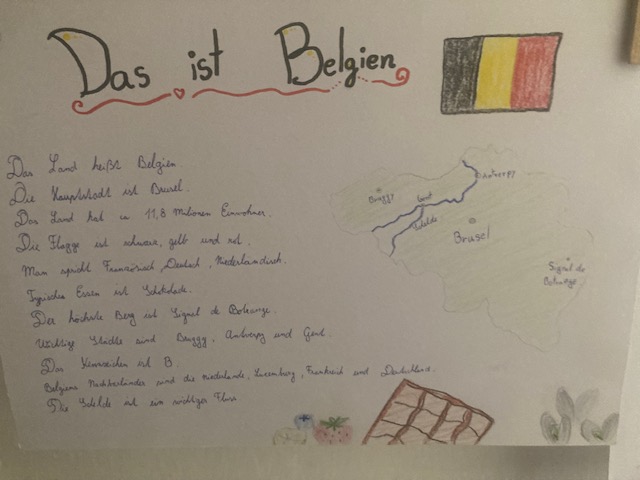 Das ist Belgien
Das Land heißt Belgien.
Die Hauptstadt ist Brusel.
Das Land hat 11,8 Milionen Einwohner.
Die Flagge ist schwarz, gelb und rot.
Man spricht Französisch, Deutsch, Niederländisch.
Typischen Essen ist Schokolade.
Der höchste Berg ist Signal de Botrange.
Wichtige Städte sind Bruggy, Antwerpy und Gent.
Das Kennzeichen ist B.
Belgiens Nachbarländer sind die Niederlande, Luxemburg, Frankreich und Deutschland.
Die Schelde ist ein wichtiger Fluss
Antwerpy
Bruggy
Gent
Schelde
Brusel
Signal de
Botrange